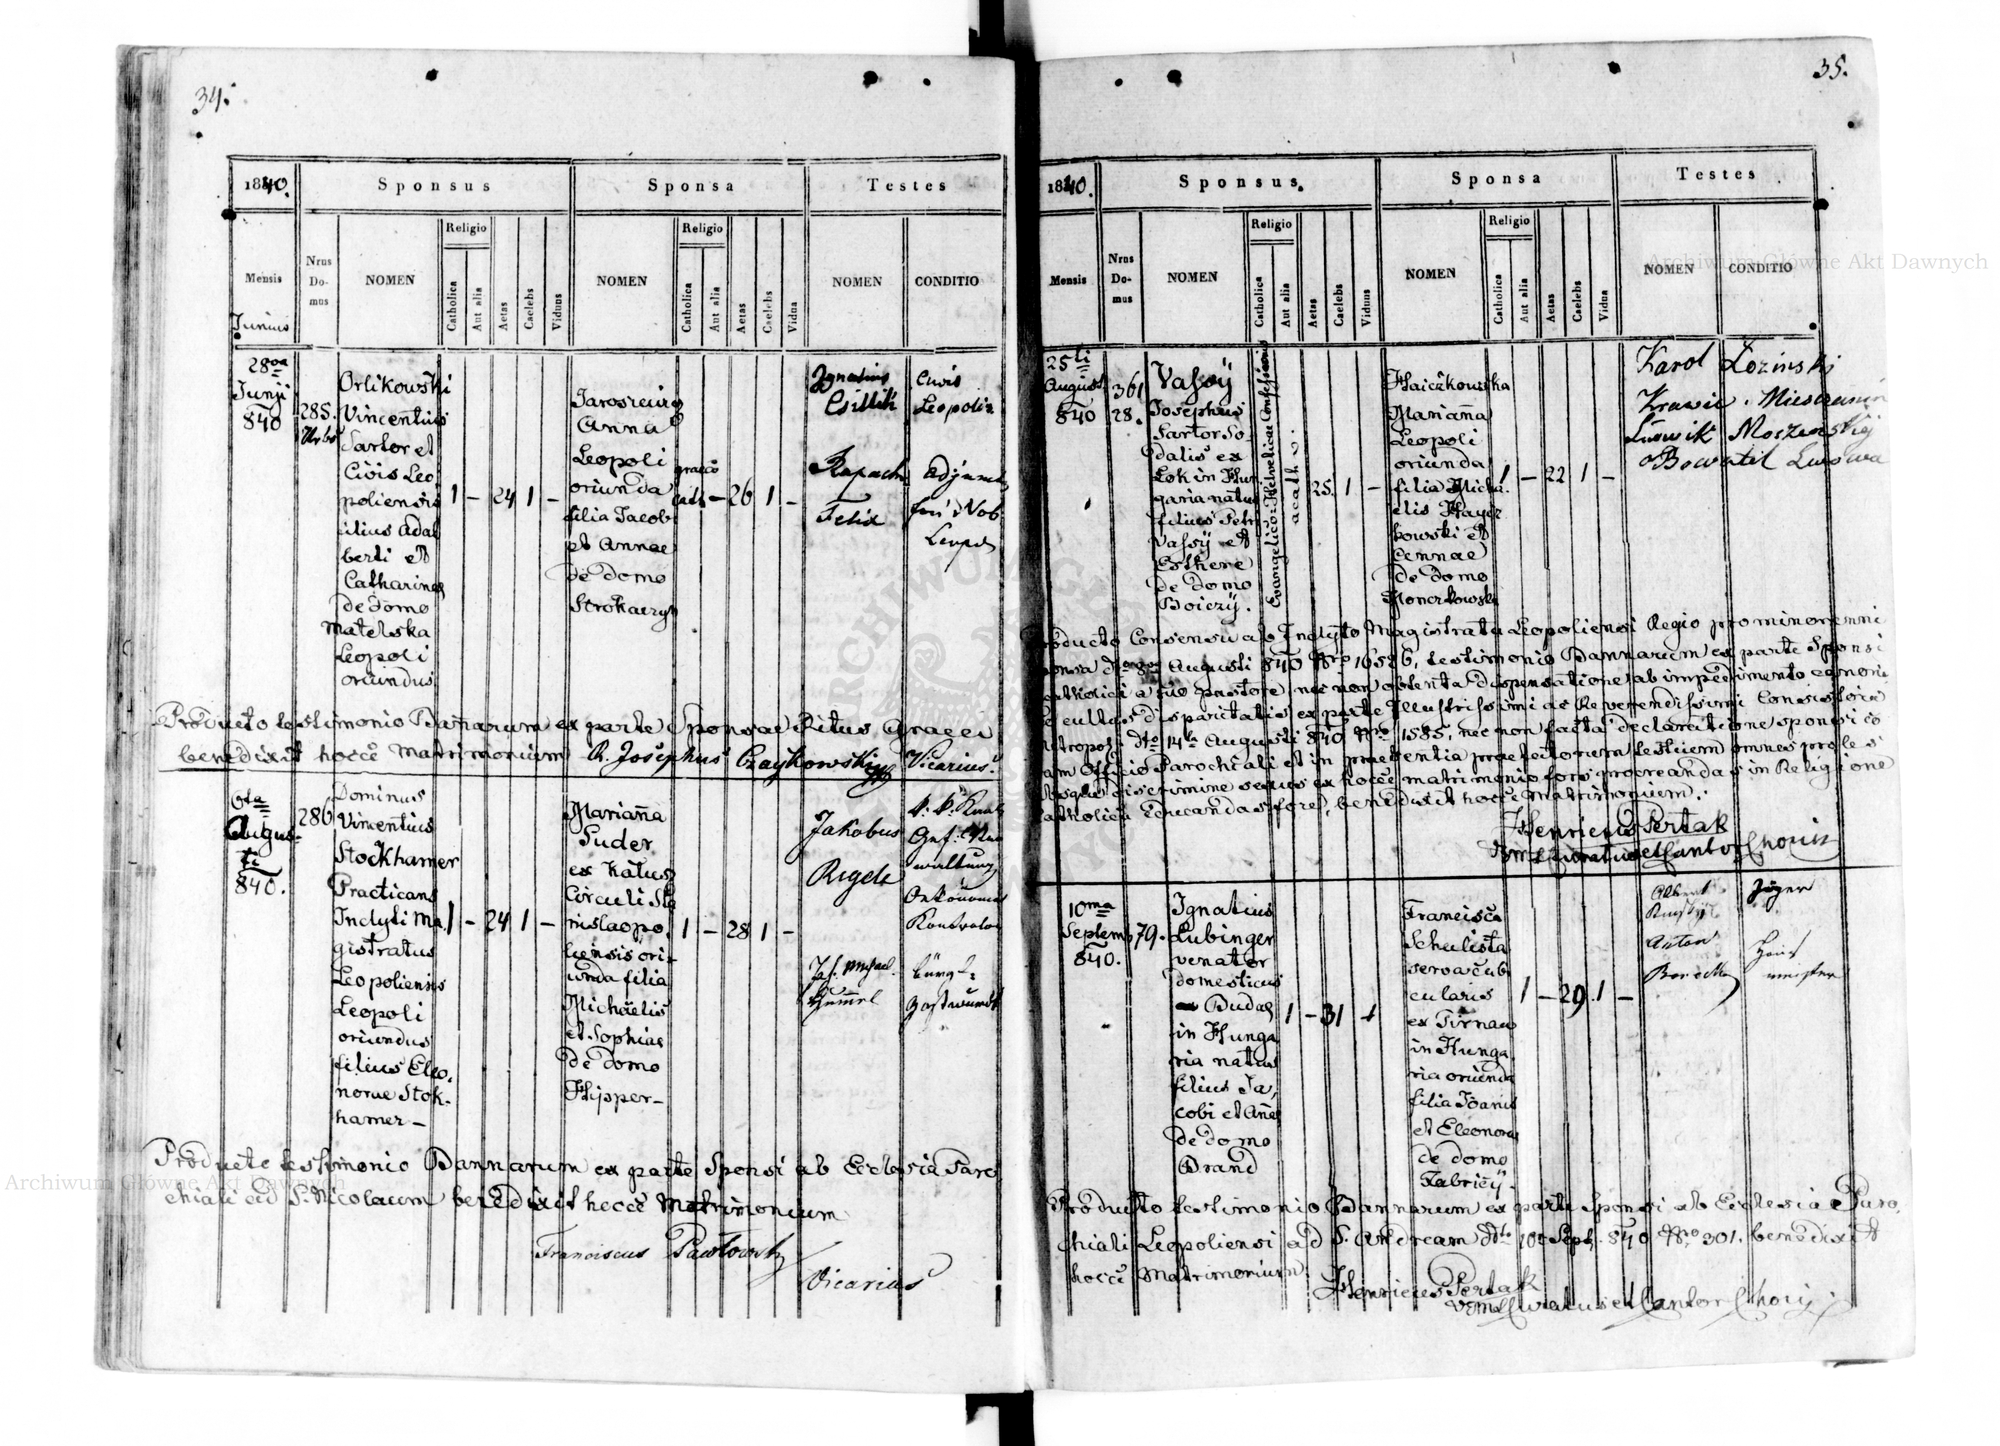 34.
1840.
Sponsus
Sponsa
Testes
Mensis
Nrus
Do-
mus
NOMEN
Religio
Catholica
Aut alia
Aetas
Caelebs
Viduus
NOMEN
Religio
Catholica
Aut alia
Aetas
Caelebs
Vidua
NOMEN
CONDITIO
Junius
28va
Junji
840
285.
Urbs
Orlikowski
Vincentius
Sartor et
Civis Leo
poliensis
filius Adal
berti et
Catharinae
de domo
Matelska
Leopoli
oriundus
1 – 24 1 –
Anna
Leopoli
oriunda
filia Jacobi
et Annae
de domo
graeco
cath – 26 1 –
Ignatius
Civis
Leopolis
Felix
Producto testimonio Bañarum ex parte Sponsae Ritus Graeci
benedixit hocce Matrimonium R. Josephus Czaykowski Vicarius.
6ta
Augus-
ti
840.
286
Dominus
Vincentius
Stockhamer
Practicans
Indyti Ma
gistratus
Leopoliensis
Leopoli
oriundus
filius Eleo.
norae Stok-
hamer –
1 – 24 1 –
Marianna
Puder
ex Katusz
Circuli Sta
nislaopo.
liensis ori
unda filia
Michaelis
et Sophiae
de domo
Hipper –
1 – 28 1 –
Jakobus
Rigele
Oekonomat
Hummel
Producto testimonio Bannarum ex parte Sponsi ab Ecclesia Paro
chiali ad S. Nicolaum benedixit hocce Matrimonium
Franciscus Pawlowski
Vicarius
35.
1840.
Sponsus
Sponsa
Testes
Mensis
Nrus
Do-
mus
NOMEN
Religio
Catholica
Aut alia
Aetas
Caelebs
Viduus
NOMEN
Religio
Catholica
Aut alia
Aetas
Caelebs
Vidua
NOMEN
CONDITIO
25ti
August
840
361
28.
Vassÿ
Josephus
Sartor So-
dalis ex
Lok in Hun
garia natus
filius Petri
Vassÿ et
Esthere
de domo
Boiczÿ.
Evangelico-Helveticae Confessionis
acath.
25. 1 –
Haiczkowska
Marianna
Leopoli
oriunda
filia Micha
elis Haycz
kowski et
Annae
de domo
Monczkowska
1 – 22 1 –
Karol Łozinski
Krawic. Mieszczanin
Ludwik
Obowatel Lwowa
Producto Consensu ab Indyto Magistratu Leopoliensi Regio pro minorenni
sponsa dto Augusti 840 Nro 16526, testimonio Bannarum ex parte Sponsi
acatholici a suo pastore, nec non obtenta dispensatione ab impedimento
cultus disparitatis ex parte Illustrissimi ac Reverendissimi Consistorii
Metropol: dto 14ta Augusti 840 Nro 1585, nec non facta declaratione sponsi co
ram Officio Parochiali et in praesentia praefatorum testium omnes proles si
absque discrimine sexus ex hocce matrimonio fors procreandas in Religione
catholica educandas fore, benedixit hocce Matrimonium.
Henricus Pertak
Curatus et Cantor Chori
10ma
Septemb
840.
79.
Ignatius
Lubinger
venator
domesticus
Budae
in Hunga
ria natus
filius Ja,
cobi et Añae
de domo
Brand
1 – 31 – 1
Francisca
Schulista
serva cub
cularis
ex Tirnau
in Hunga
ria oriunda
filia Joanis
et Eleonorae
de domo
Fabricÿ.
1 – 29 1 –
Albert
Jäger
Anton
Haus
meister
Producto testimonio Bannarum ex parte Sponsi ab Ecclesia Paro,
chiali Leopoliensi ad S. Andream dto 10t Sept. 840 Nro 301. benedixit
hocce Matrimonium
Henricus Pertak
Curatus et Cantor Chori
Archiwum Główne Akt Dawnych
Archiwum Główne Akt Dawnych